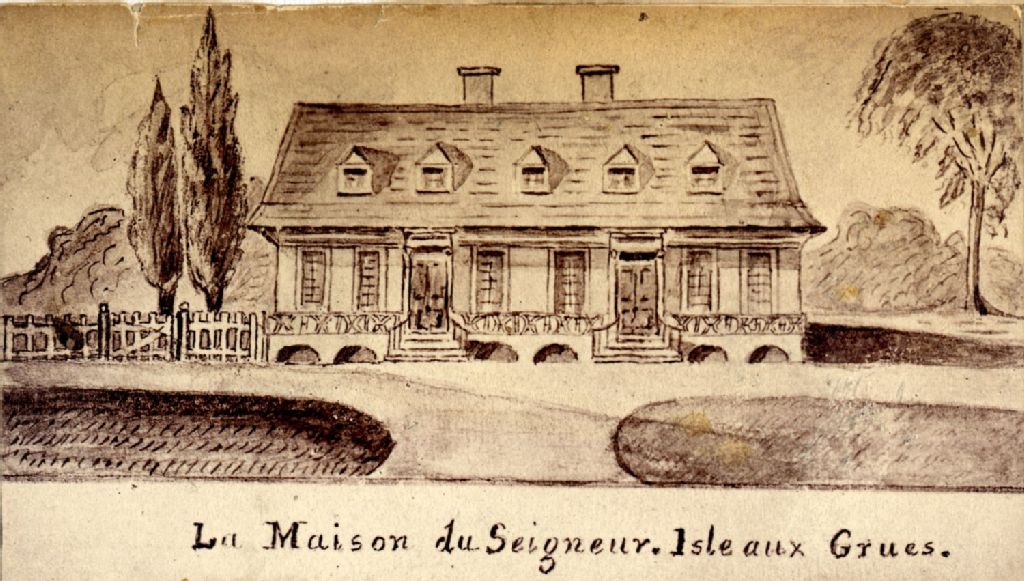 La Maison du Seigneur. Isle aux Grues.